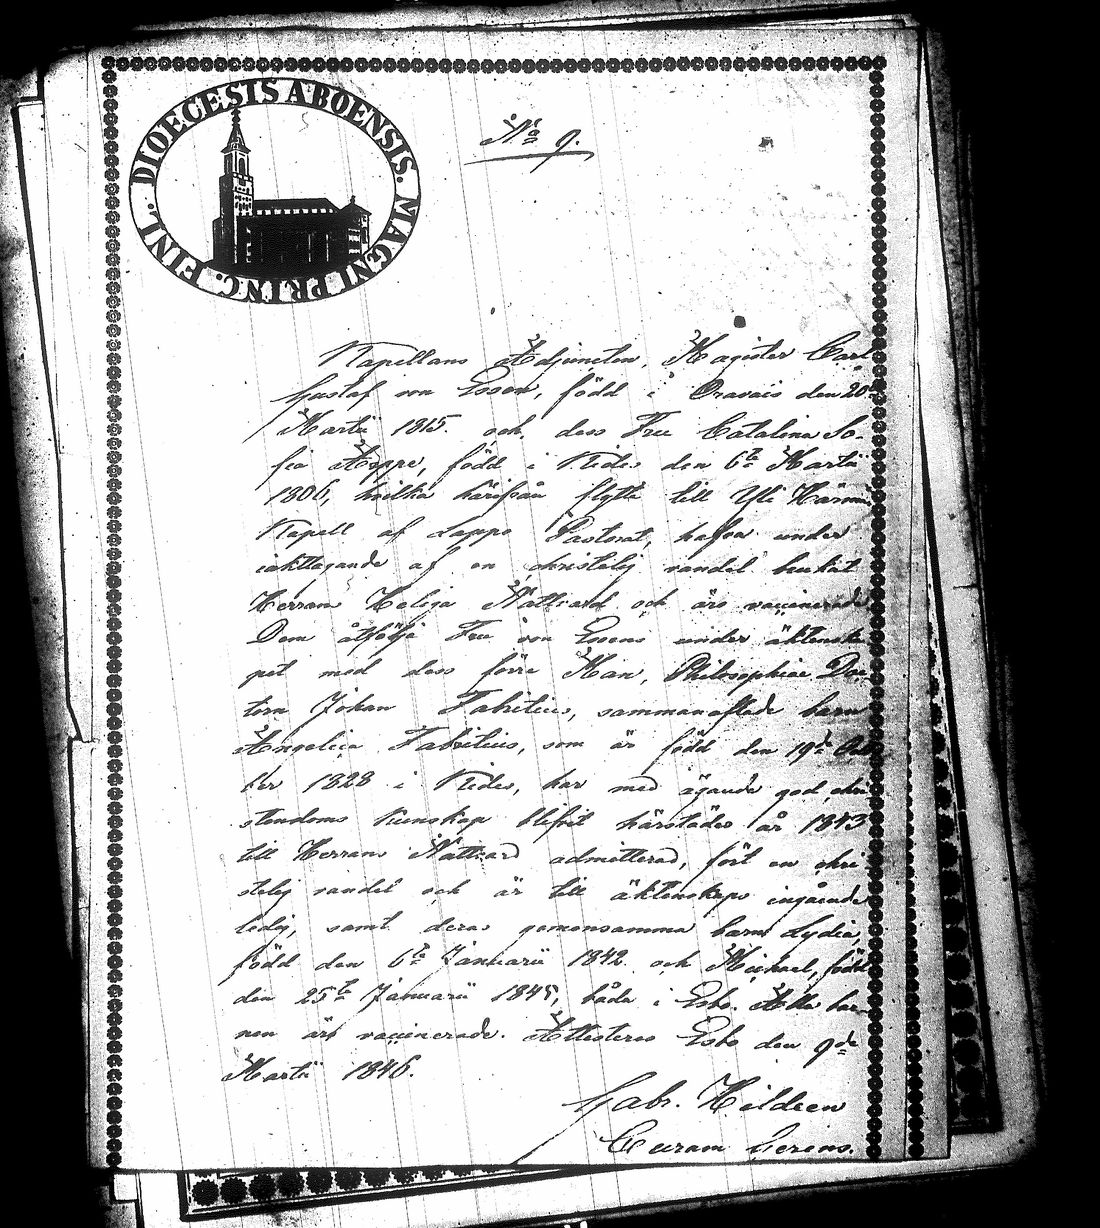 DIOECESIS ABOENSIS. MAGNI PRINC. FINL.
No 9.
Kapellans Adjuncten, Magister Carl
Gustaf von Essen, född i Oravais den 20
Martii 1815. och dess Fru Catalina So-
fia Hoppe, född i Weder den 6te Martii
1806, hvilka härifrån flytta till Yli Härmä
Kapell af Lappo Pastorat, hafva under
iakttagande af en christelig vandel bruk̃at
Herrans Heliga Nattvard och äro vaccinerade
Dem åtfölja Fru von Essens under äktenska
pet med dess förre Man, Philosophiae Doc-
torn Johan Fabritius, sammanaflade barn
Angelica Fabritius, som är född den 19de
ber 1828 i har med ägande god chri
stendoms kunskap blifvit härstädes år 1843
till Herrans Nattvard admitterad, fört en chri
stelig vandel och är till äktenskaps ingående
ledig, samt deras gemensamma barn Lydia,
född den 6te Januarii 1842. och Michael, född
den 25te Januarii 1845, båda i Esbo. Alla bar-
nen äro vaccinerade. Attesteras Esbo den 9de
Martii 1846.
Gabr. Hildeen
Curam Gerens.